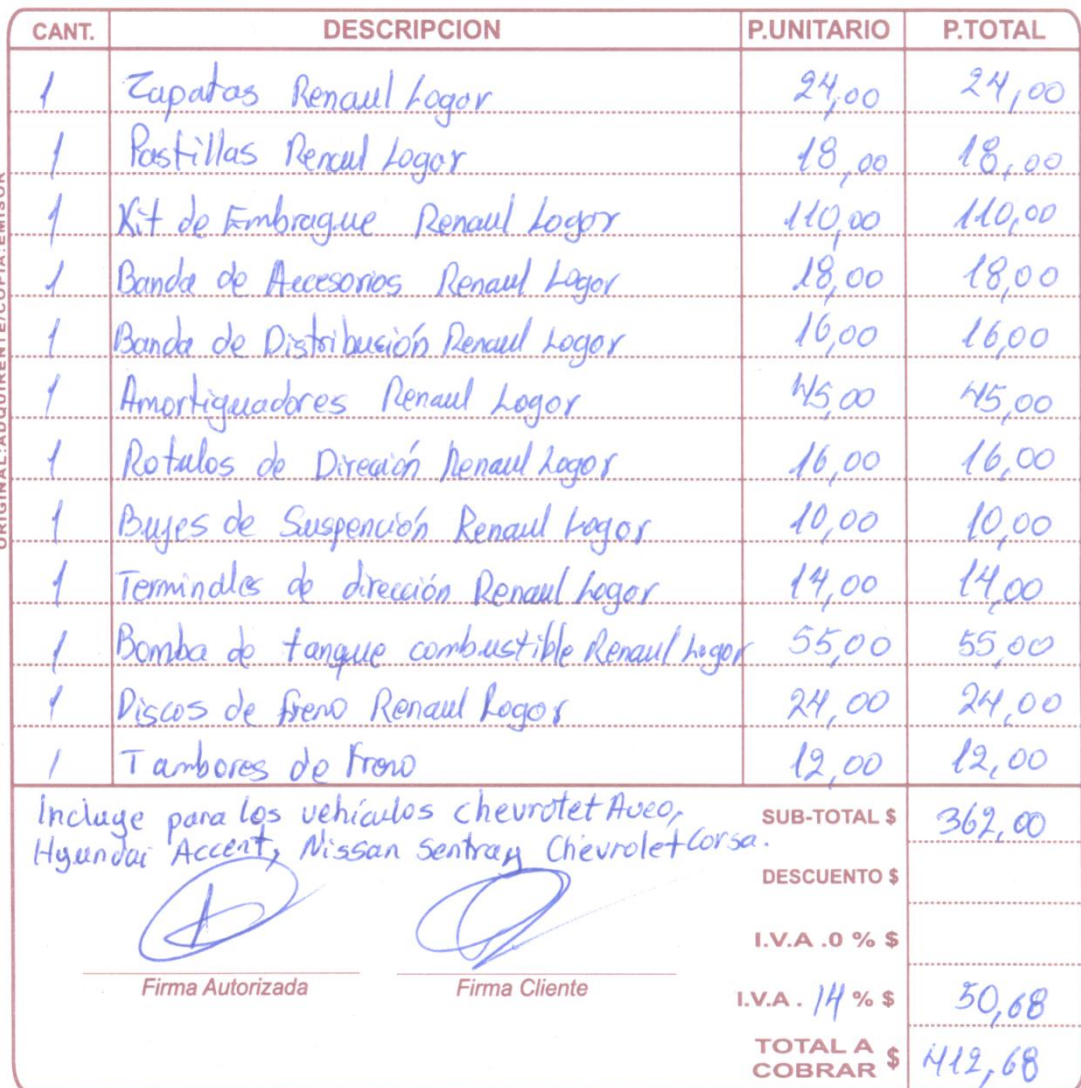 CANT. DESCRIPCION P.UNITARIO P.TOTAL
1 Zapatas Renaul Logar 24,00 24,00
1 Pastillas Renaul Logar 18,00 18,00
1 Kit de Embrague Renaul Logar 110,00 110,00
1 Banda de Accesorios Renaul Logar 18,00 18,00
1 Banda de Distribución Renaul Logar 16,00 16,00
1 Amortiguadores Renaul Logar 45,00 45,00
1 Rotulos de Dirección Renaul Logar 16,00 16,00
1 Bujes de Suspención Renaul Logar 10,00 10,00
1 Terminales de dirección Renaul Logar 14,00 14,00
1 Bomba de tanque combustible Renaul Logar 55,00 55,00
1 Discos de freno Renaul Logar 24,00 24,00
1 Tambores de Freno 12,00 12,00
ORIGINAL:ADQUIRENTE/COPIA:EMISOR
Incluye para los vehículos chevrotet Aveo,
Hyundai Accent, Nissan Sentra y Chevrolet Corsa.
SUB-TOTAL $ 362,00
DESCUENTO $
I.V.A .0 % $
Firma Autorizada Firma Cliente
I.V.A . 14 % $ 50,68
TOTAL A COBRAR $ 412,68